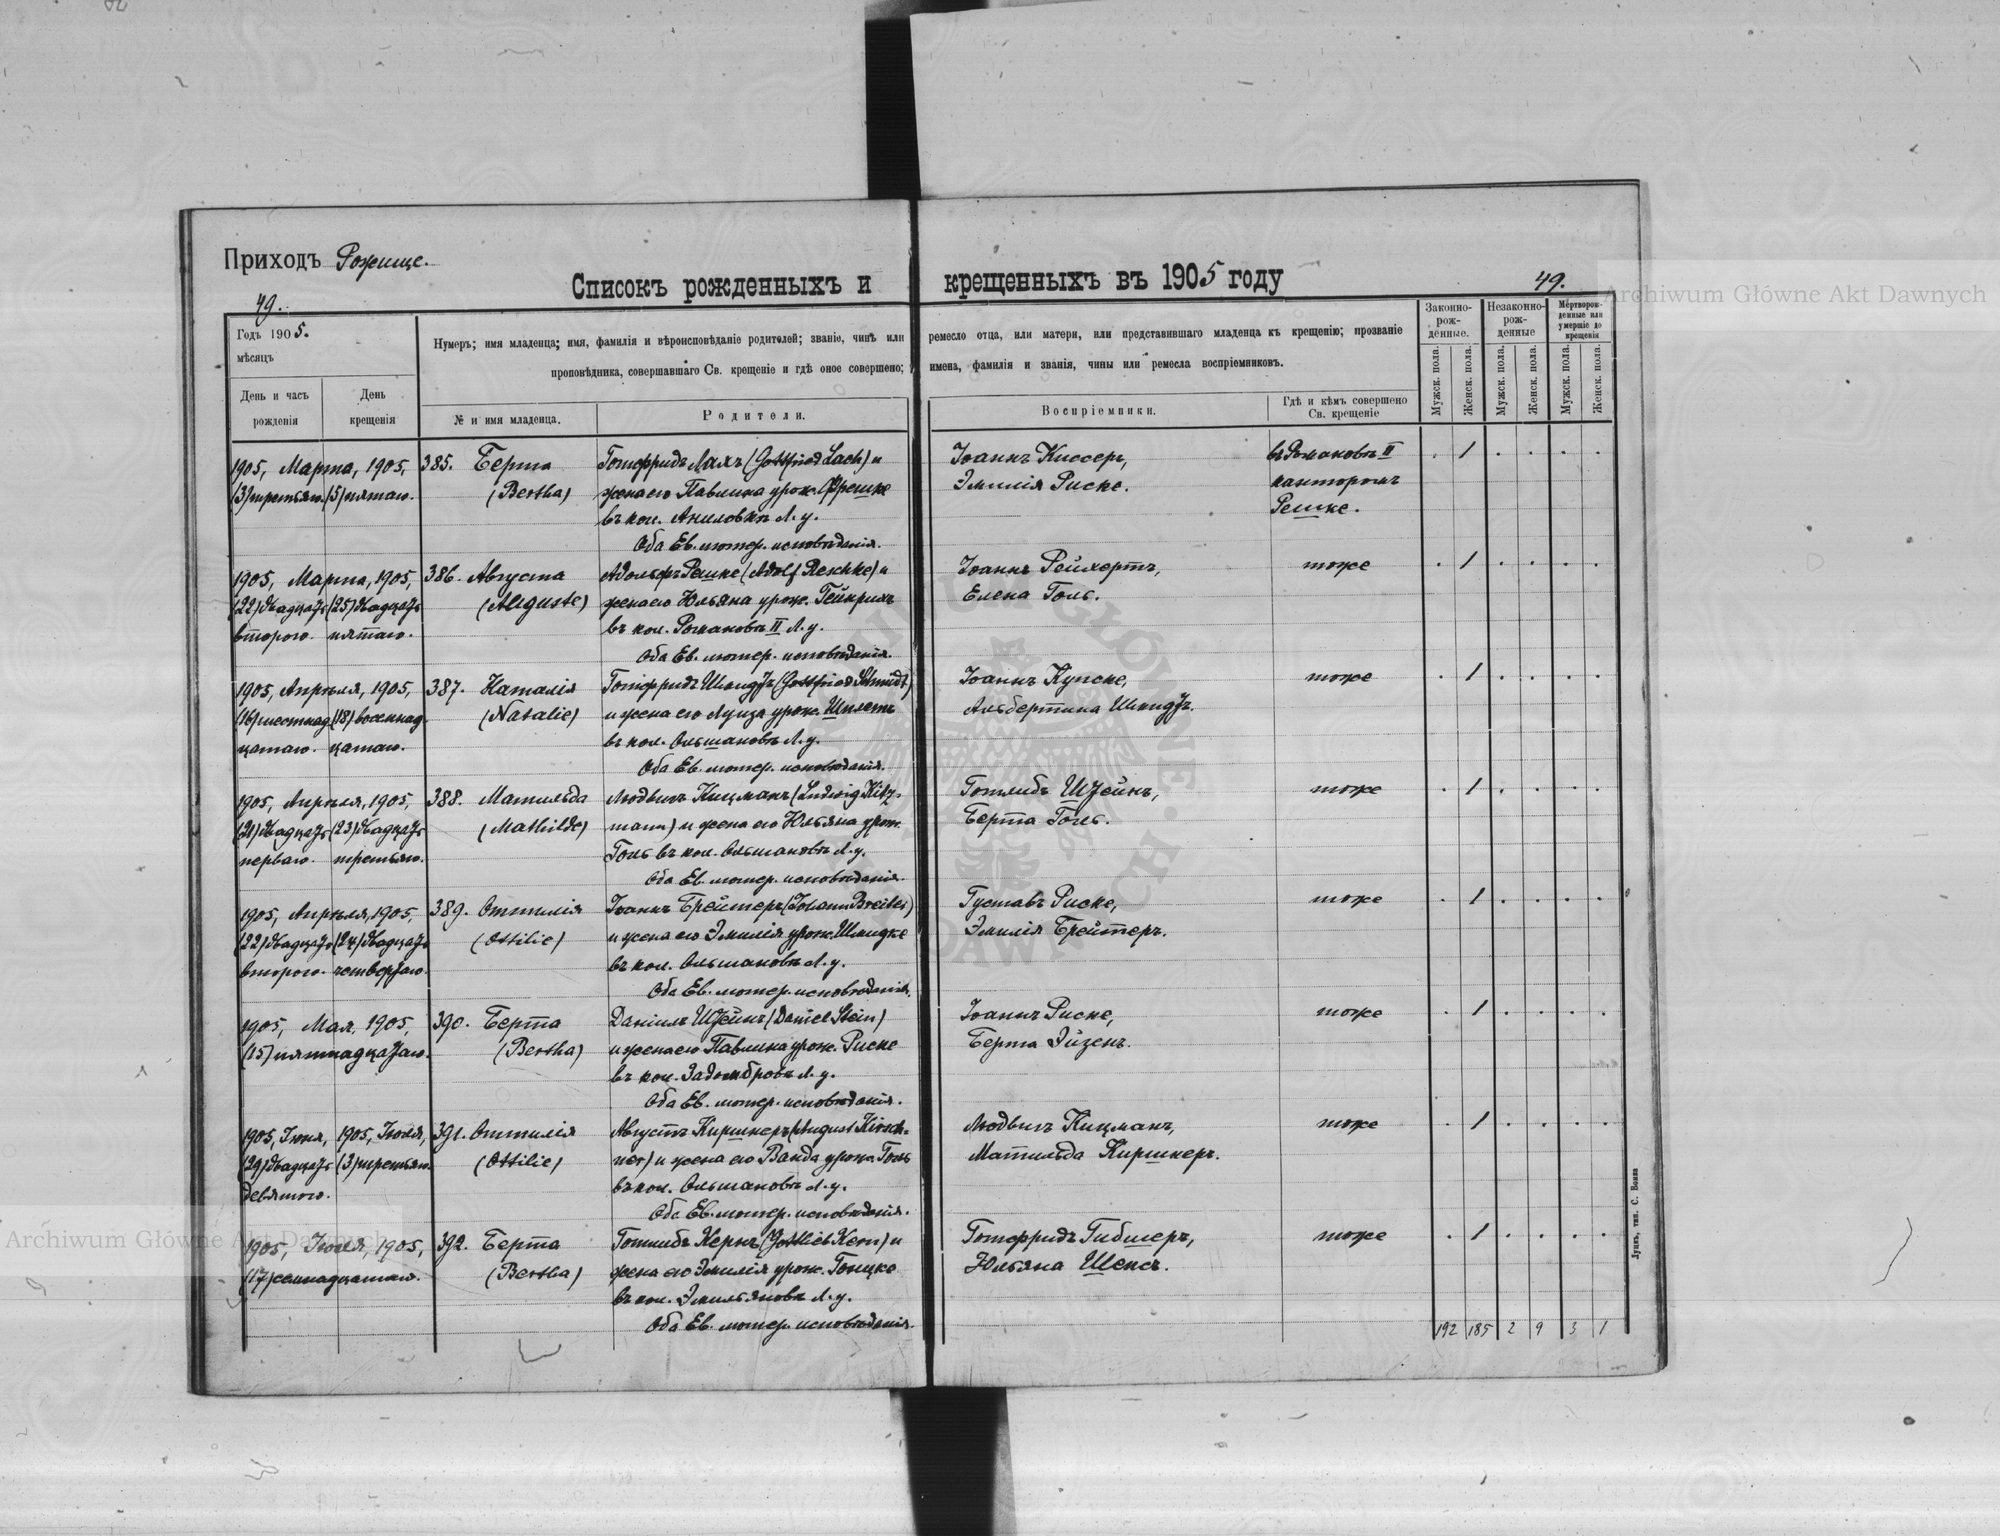 Приходъ Рожище.
Списокъ рожденныхъ и крещенныхъ въ 1905 году
49.
49.
Годъ 1905.
мѣсяцъ
День и часъ рожденія
День крещенія
Нумеръ; имя младенца; имя, фамилія и вѣроисповѣданіе родителей; званіе, чинъ или ремесло отца, или матери, или представившаго младенца къ крещенію; прозваніе
проповѣдника, совершавшаго Св. крещеніе и гдѣ оное совершено; имена, фамилія и званія, чины или ремесла воспріемниковъ.
№ и имя младенца.
Родители.
Воспріемники.
Гдѣ и кѣмъ совершено Св. крещеніе
Законно-рож-денные.
Незаконно-рож-денные
Мертворож-денные или умершіе до крещенія
Мужск. пола.
Женск. пола.
Мужск. пола.
Женск. пола.
Мужск. пола.
Женск. пола.
1905, Марта, 1905, 385. Берта Готфридъ Лахъ (Gottfried Lach) и Іоаннъ Киссеръ, въ Романовѣ II . 1 . . . .
(3) третьяго. (5) пятаго. (Bertha) жена его Павлина урож. Фрешке Эмилія Риске. канторомъ
въ кол. Аниловкѣ Л. у. Решке.
Оба Ев. лютер. исповѣданія.
1905, Марта, 1905, 386. Августа Адольфъ Решке (Adolf Reschke) и Іоаннъ Рейхертъ, тоже . 1 . . . .
(22) двадцать (25) двадцать (Auguste) жена его Юльяна урож. Гейнрихъ Елена Голь.
второго. пятаго. въ кол. Романовѣ II Л. у.
Оба Ев. лютер. исповѣданія.
1905, Апрѣля, 1905, 387. Наталія Готфридъ Шмидтъ (Gottfried Schmidt) Іоаннъ Купске, тоже . 1 . . . .
(16) шестнад (18) восемнад (Natalie) и жена его Луиза урож. Альбертина Шмидтъ.
цатаго. цатаго. въ кол. Ольшановѣ Л. у.
Оба Ев. лютер. исповѣданія.
1905, Апрѣля, 1905, 388. Матильда Людвигъ Кицманъ (Ludwig Kitz- Готлибъ Штейнъ, тоже . 1 . . . .
(21) двадцать (23) двадцать (Mathilde) mann) и жена его Юльяна урож. Берта Голь.
перваго. третьяго. Голь въ кол. Ольшановѣ Л. у.
Оба Ев. лютер. исповѣданія.
1905, Апрѣля, 1905, 389. Оттилія Іоаннъ Брейтеръ (Johann Breiter) Густавъ Риске, тоже . 1 . . . .
(22) двадцать (24) двадцать (Ottilie) и жена его Эмилія урож. Шмидке Эмилія Брейтеръ.
второго. четвертаго. въ кол. Ольшановѣ Л. у.
Оба Ев. лютер. исповѣданія.
1905, Мая, 1905, 390. Берта Даніилъ Штейнъ (Daniel Stein) Іоаннъ Риске, тоже . 1 . . . .
(15) пятнадцатаго. (Bertha) и жена его Павлина урож. Риске Берта Эйзенъ.
въ кол. Задомбровѣ Л. у.
Оба Ев. лютер. исповѣданія.
1905, Іюня, 1905, Іюля, 391. Оттилія Августъ Киршнеръ (August Kirsch- Людвигъ Кицманъ, тоже . 1 . . . .
(29) двадцать (3) третьяго. (Ottilie) ner) и жена его Ванда урож. Голь Матильда Киршнеръ.
девятого. въ кол. Ольшановѣ Л. у.
Оба Ев. лютер. исповѣданія.
1905, Іюля, 1905, 392. Берта Готлибъ Кернъ (Gottlieb Kern) и Готфридъ Гибшеръ, тоже . 1 . . . .
(17) семнадцатаго. (Bertha) жена его Эмилія урож. Гонцке Юльяна Шенсъ.
въ кол. Эмильяновѣ Л. у.
Оба Ев. лютер. исповѣданія.
192 185 2 9 3 1
Луцкъ, тип. С. Бонка
Archiwum Główne Akt Dawnych
Archiwum Główne Akt Dawnych